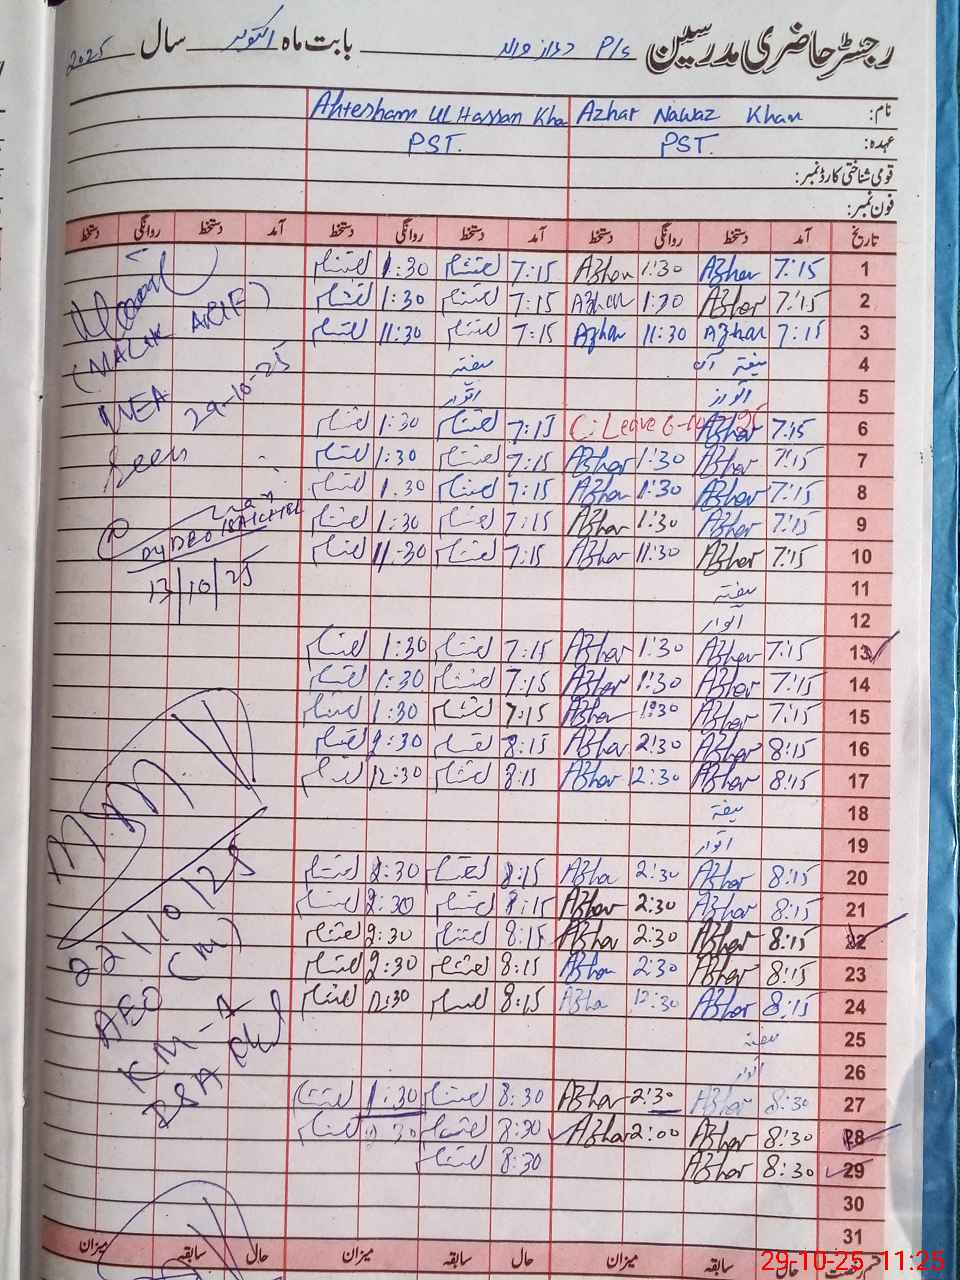 رجسٹر حاضری مدرسین P/s بابت ماہ اکتوبر سال 2025
نام: Azhar Nawaz Khan Ahtesham Ul Hassan Kha
عہدہ: PST. PST.
قومی شناختی کارڈ نمبر:
فون نمبر:
تاریخ آمد دستخط روانگی دستخط آمد دستخط روانگی دستخط آمد دستخط روانگی دستخط
1 7:15 Azhar 1:30 Azhar 7:15 احتشام 1:30 احتشام
2 7:15 Azhar 1:30 Azhar 7:15 احتشام 1:30 احتشام
3 7:15 Azhar 11:30 Azhar 7:15 احتشام 11:30 احتشام
4 ہفتہ ہفتہ
5 اتوار اتوار
6 7:15 Azhar C. Leave 7:15 احتشام 1:30 احتشام
7 7:15 Azhar 1:30 Azhar 7:15 احتشام 1:30 احتشام
8 7:15 Azhar 1:30 Azhar 7:15 احتشام 1:30 احتشام
9 7:15 Azhar 1:30 Azhar 7:15 احتشام 1:30 احتشام
10 7:15 Azhar 11:30 Azhar 7:15 احتشام 11:30 احتشام
11 ہفتہ
12 اتوار
13 7:15 Azhar 1:30 Azhar 7:15 احتشام 1:30 احتشام
14 7:15 Azhar 1:30 Azhar 7:15 احتشام 1:30 احتشام
15 7:15 Azhar 1:30 Azhar 7:15 احتشام 1:30 احتشام
16 8:15 Azhar 2:30 Azhar 8:15 احتشام 2:30 احتشام
17 8:15 Azhar 12:30 Azhar 8:15 احتشام 12:30 احتشام
18 ہفتہ
19 اتوار
20 8:15 Azhar 2:30 Azha 8:15 احتشام 2:30 احتشام
21 8:15 Azhar 2:30 Azhar 8:15 احتشام 2:30 احتشام
22 8:15 Azhar 2:30 Azhar 8:15 احتشام 2:30 احتشام
23 8:15 Azhar 2:30 Azhar 8:15 احتشام 2:30 احتشام
24 8:15 Azhar 12:30 Azha 8:15 احتشام 12:30 احتشام
25 ہفتہ
26 اتوار
27 8:30 Azhar 2:30 Azhar 8:30 احتشام 1:30 احتشام
28 8:30 Azhar 2:00 Azhar 8:30 احتشام 2:30 احتشام
29 8:30 Azhar 8:30 احتشام
30
31
حال سابقہ میزان حال سابقہ میزان حال سابقہ میزان
(MALIK ARIF)
29-10-25
Seen
Dy DEO
13/10/25
22/10/25
AEO (M)
29-10-25 11:25